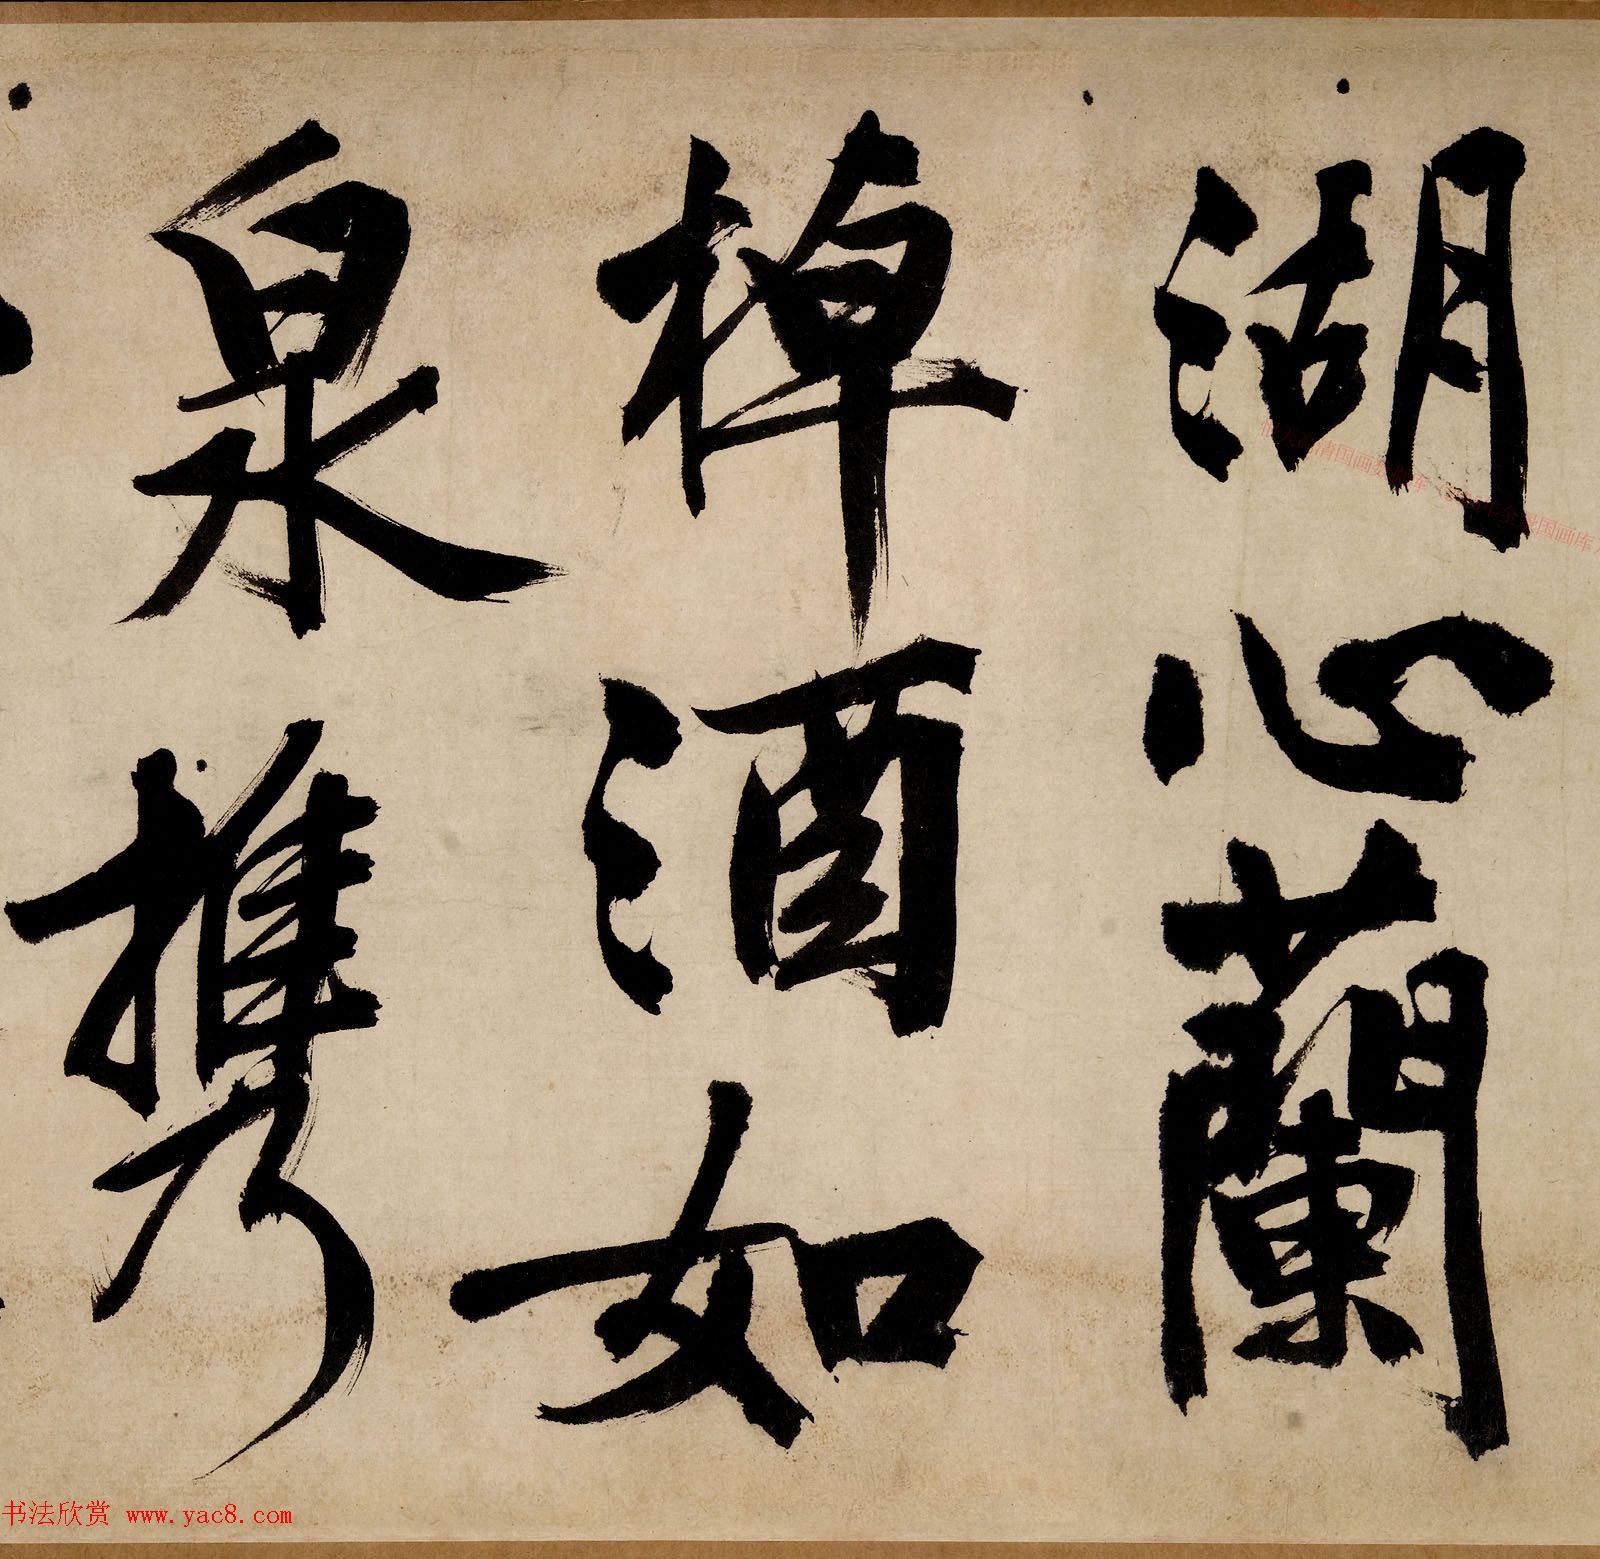 湖心蘭
棹酒如
泉攜
书法欣赏 www.yac8.com